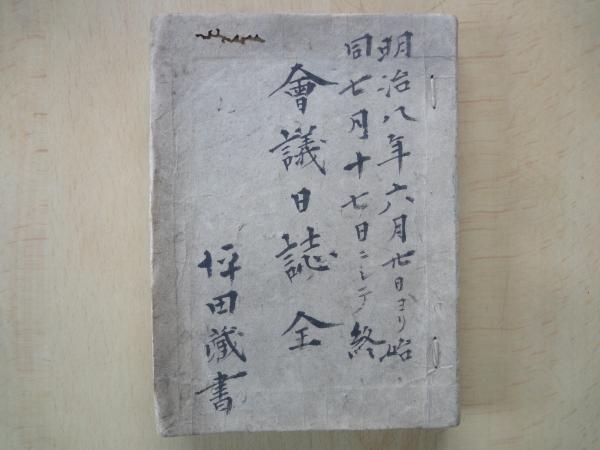 明治八年六月廿日ヨリ始
同七月十七日ニシテ終
會議日誌 全
坪田藏書